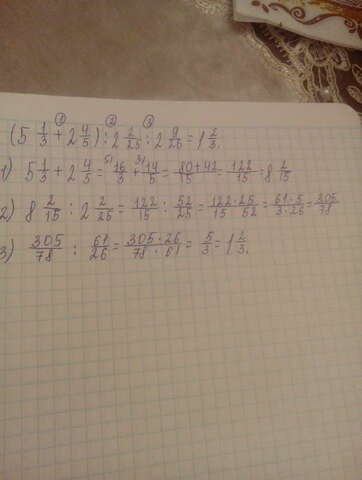 ① ② ③
(5 1/3 + 2 4/5) : 2 2/25 : 2 9/26 = 1 2/3.
1) 5 1/3 + 2 4/5 = 5\16/3 + 3\14/5 = 80+42/15 = 122/15 = 8 2/15
2) 8 2/15 : 2 2/25 = 122/15 : 52/25 = 122·25/15 52 = 61·5/3·26 = 305/78
3) 305/78 : 61/26 = 305·26/78·61 = 5/3 = 1 2/3.